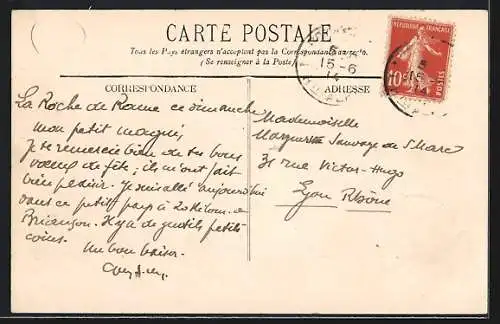 CARTE POSTALE
Tous les Pays étrangers n'acceptent pas la Correspondance au recto.
(Se renseigner à la Poste)
CORRESPONDANCE
ADRESSE
RÉPUBLIQUE FRANÇAISE
10c
POSTES
6
15-6
14
La Roche de Rame ce dimanche
Mon petit
Je te remercie bien de tes bons
vœux de fête; ils m'ont fait
bien plaisir. Je suis allé aujourd'hui
dans ce petit pays à 20 kilom. de
Briançon. Il y a de gentils petits
coins.
Un bon baiser.
Mademoiselle
Marguerite Sauvage de St Marc
31 rue Victor-Hugo
Lyon Rhône